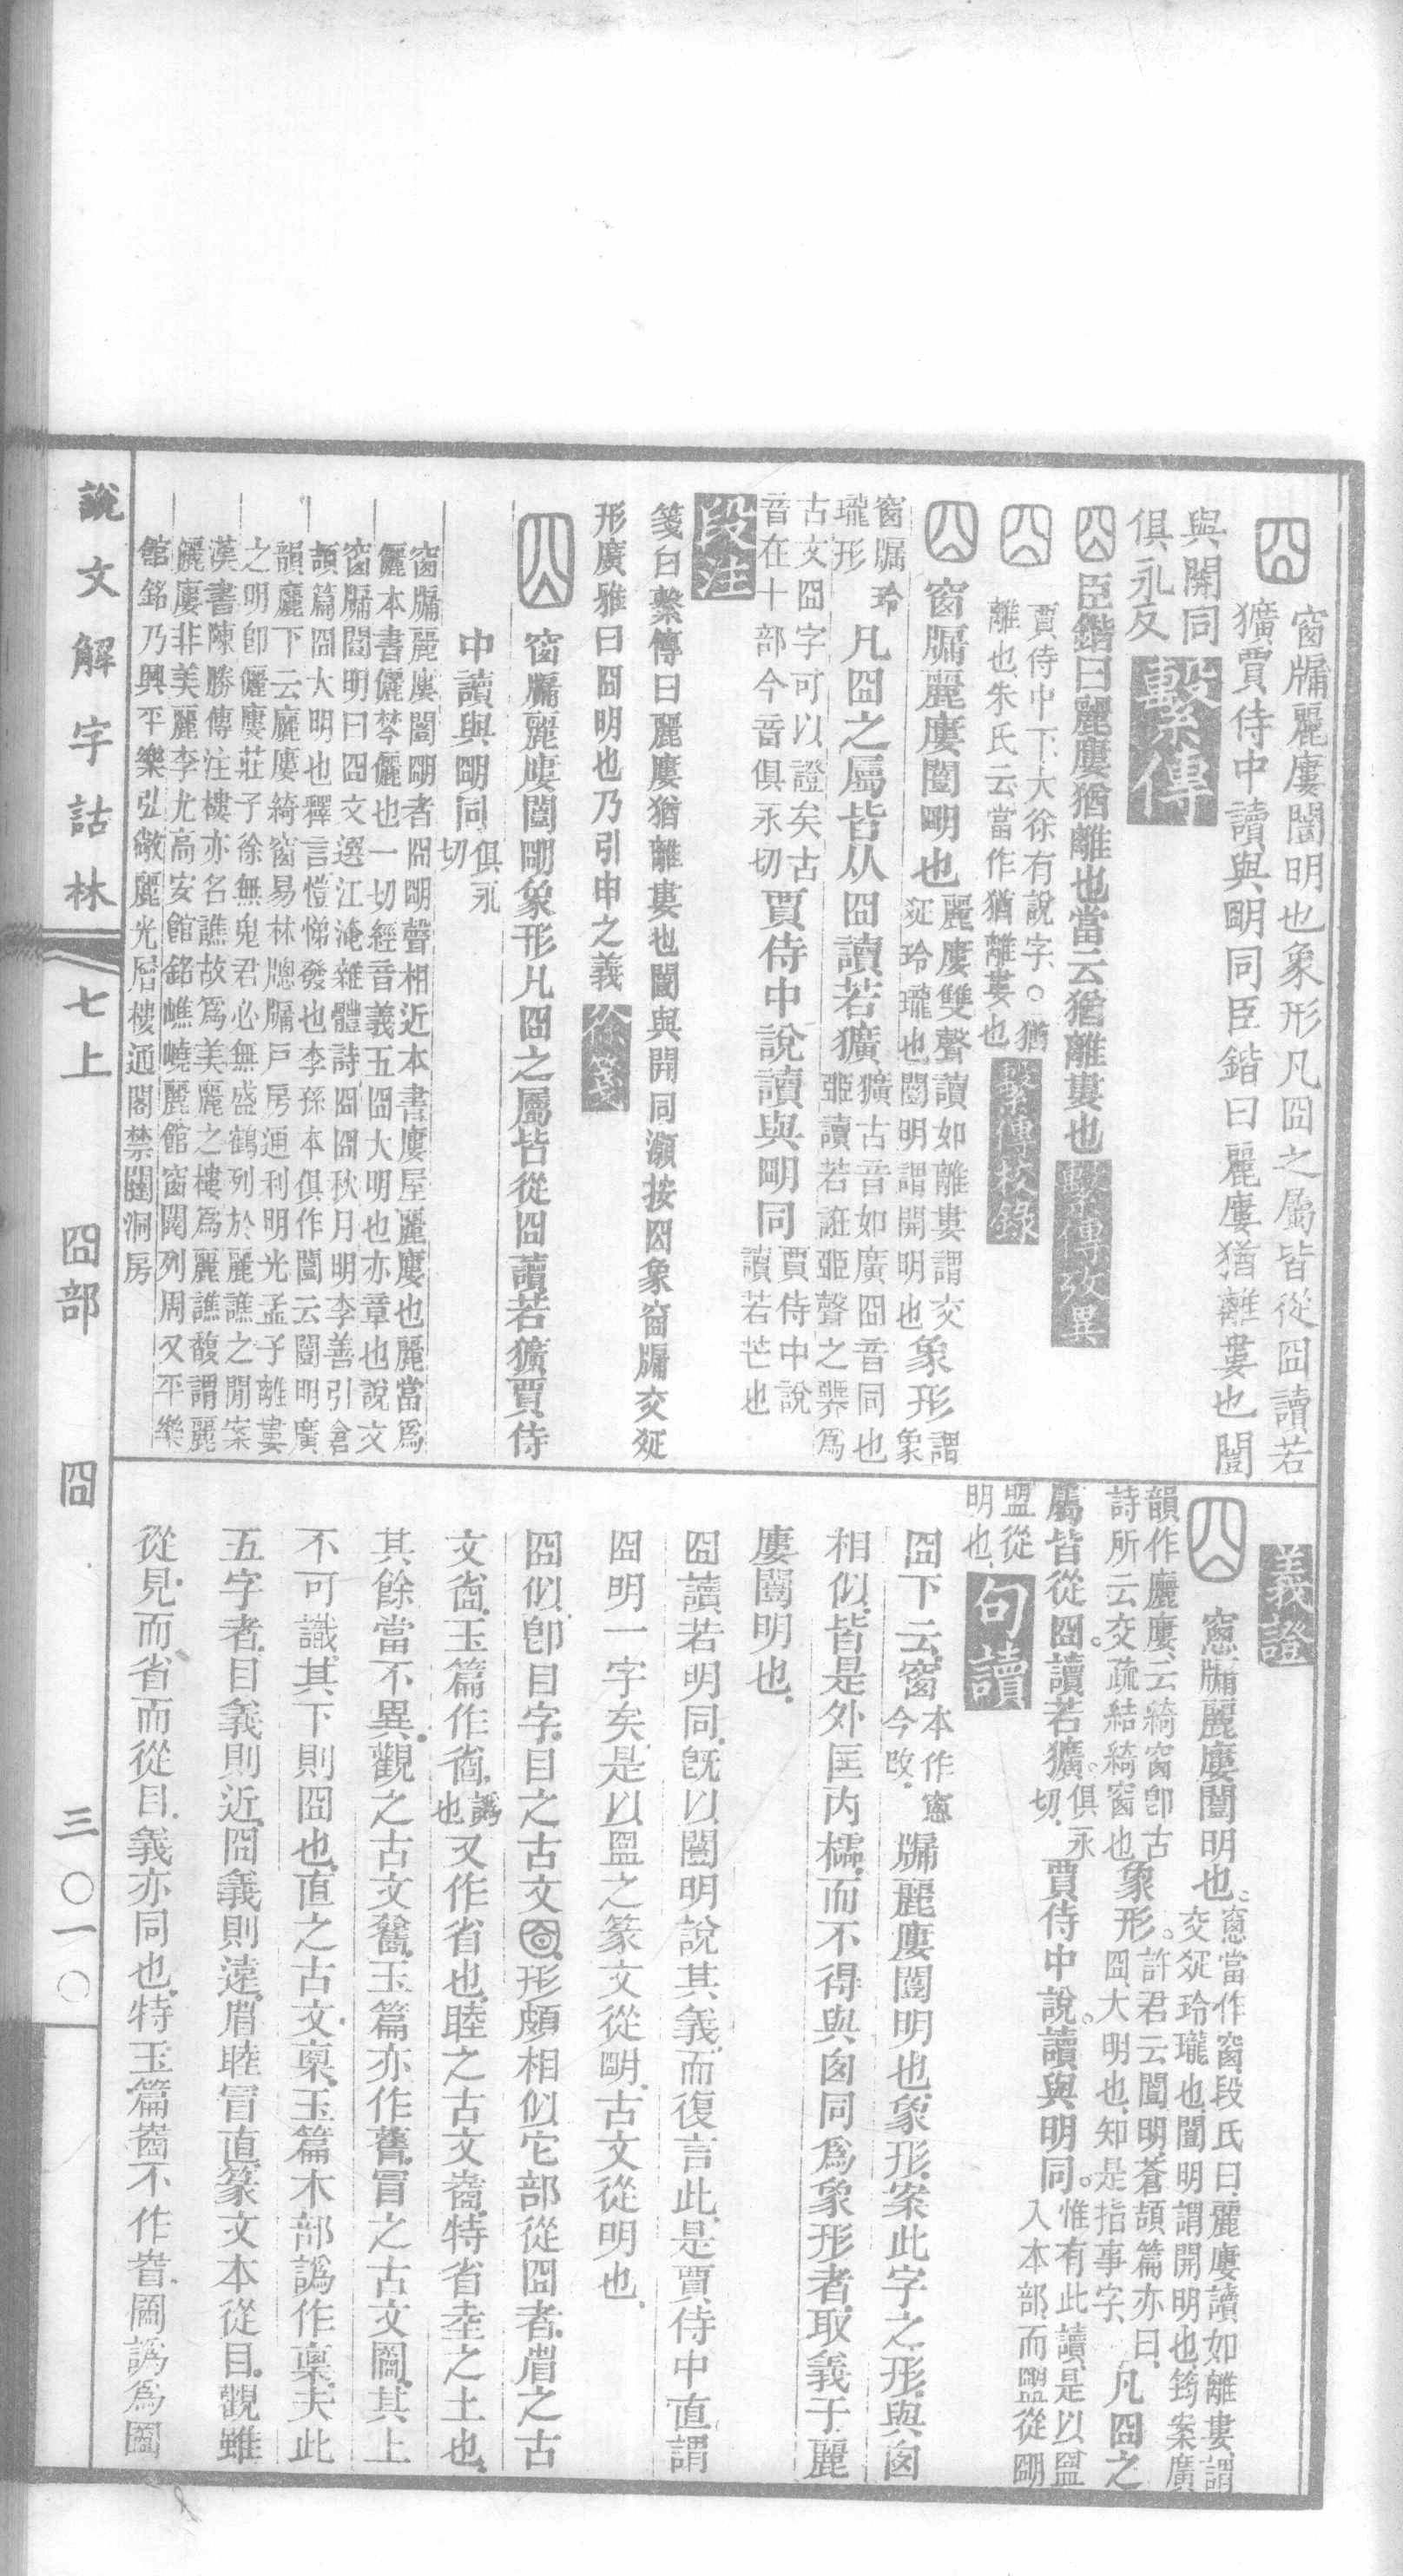 囧 窗牖麗廔闓明也象形凡囧之屬皆從囧讀若
獷賈侍中讀與朙同臣鍇曰麗廔猶離婁也闓
與開同
俱永反 繫傳
囧 臣鍇曰麗廔猶離也當云猶離婁也 繫傳攷異
囧 賈侍中下大徐有說字○猶
離也朱氏云當作猶離婁也 繫傳校錄
囧 窗牖麗廔闓朙也 麗廔雙聲讀如離婁謂交
㸚玲瓏也闓明謂開明也 象形 謂象
窗牖玲瓏形 凡囧之屬皆从囧讀若獷 獷古音如廣囧音同也
臦讀若誑臦聲之㷗爲
古文囧字可以證矣古
音在十部今音俱永切 賈侍中說讀與朙同 賈侍中說
讀若芒也
段注
箋曰繫傳曰麗廔猶離婁也闓與開同灝按囧象窗牖交㸚
形廣雅曰囧明也乃引申之義 徐箋
囧 窗牖麗廔闓朙象形凡囧之屬皆從囧讀若獷賈侍
中讀與朙同 俱永切
窗牖麗廔闓朙者囧朙聲相近本書廔屋麗廔也麗當爲
儷本書儷棽儷也一切經音義五囧大明也亦章也說文
窗牖闓明曰囧文選江淹雜體詩囧囧秋月明李善引倉
頡篇囧大明也釋言愷悌發也李孫本俱作闓云闓明廣
韻廲下云廲廔綺窗易林牕牖戸房通利明光孟子離婁
之明卽儷廔莊子徐無鬼君必無盛鶴列於麗譙之閒案
漢書陳勝傳注樓亦名譙故爲美麗之樓爲麗譙馥謂麗
廲廔非美麗李尤高安館銘嶕嶢麗館窗闥列周又平樂
館銘乃興平樂弘敞麗光層樓通閣禁闥洞房
義證
囧 窻牖麗廔闓明也 窻當作窗段氏曰麗廔讀如離婁謂
交㸚玲瓏也闓明謂開明也筠案廣
韻作廲廔云綺窗卽古
詩所云交疏結綺窗也 象形 許君云闓明蒼頡篇亦曰
囧大明也知是指事字 凡囧之
屬皆從囧讀若獷 俱永切 賈侍中說讀與明同 惟有此讀是以盟
入本部而盟從朙
盟從
明也 句讀
囧下云窗 本作窻今改 牖麗廔闓明也象形案此字之形與囪
相似皆是外匡内櫺而不得與囪同爲象形者取義于麗
廔闓明也
囧讀若明同旣以闓明說其義而復言此是賈侍中直謂
囧明一字矣是以盟之篆文從朙古文從明也
囧似卽目字目之古文形頗相似它部從囧者睂之古
文玉篇作 譌也 又作省也睦之古文特省坴之土也
其餘當不異觀之古文玉篇亦作冒之古文其上
不可識其下則囧也直之古文玉篇木部譌作夫此
五字者目義則近囧義則遠眉睦冒直篆文本從目觀雖
從見而省而從目義亦同也特玉篇不作譌爲
說文解字詁林 七上 囧部 囧 三〇一〇